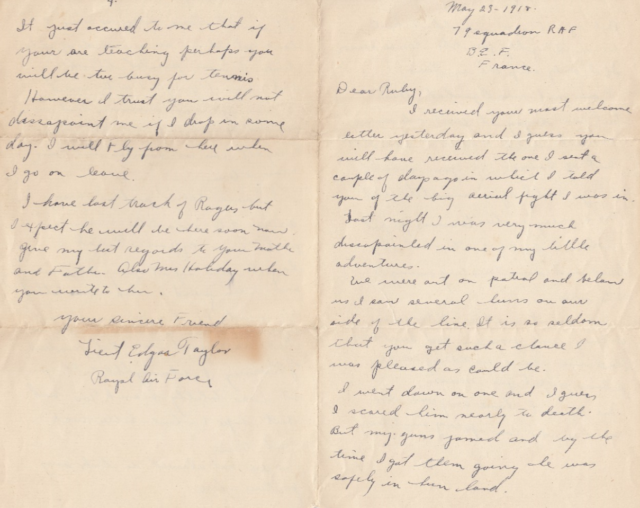 May 23-1918.
79 squadron RAF
B.E.F.
France.
Dear Ruby,
I recieved your most welcome
letter yesterday and I guess you
will have received the one I sent a
couple of days ago in which I told
you of the big aerial fight I was in.
Last night I was very much
dissapointed in one of my little
adventures.
We were out on patrol and below
us I saw several huns on our
side of the line. It is so seldom
that you get such a chance I
was pleased as could be.
I went down on one and I guess
I scared him nearly to death.
But my guns jamed and by the
time I got them going he was
safely in hun land.
4.
It just occured to me that if
your are teaching perhaps you
will be too busy for tennis
However I trust you will not
dissapoint me if I drop in some
day. I will fly from here when
I go on leave.
I have lost track of Rogers but
I expect he will be here soon now.
Give my best regards to your Mother
and Father. Also Mrs Holiday when
you write to her.
your sincere Friend
Lieut Edgar Taylor
Royal Air Force